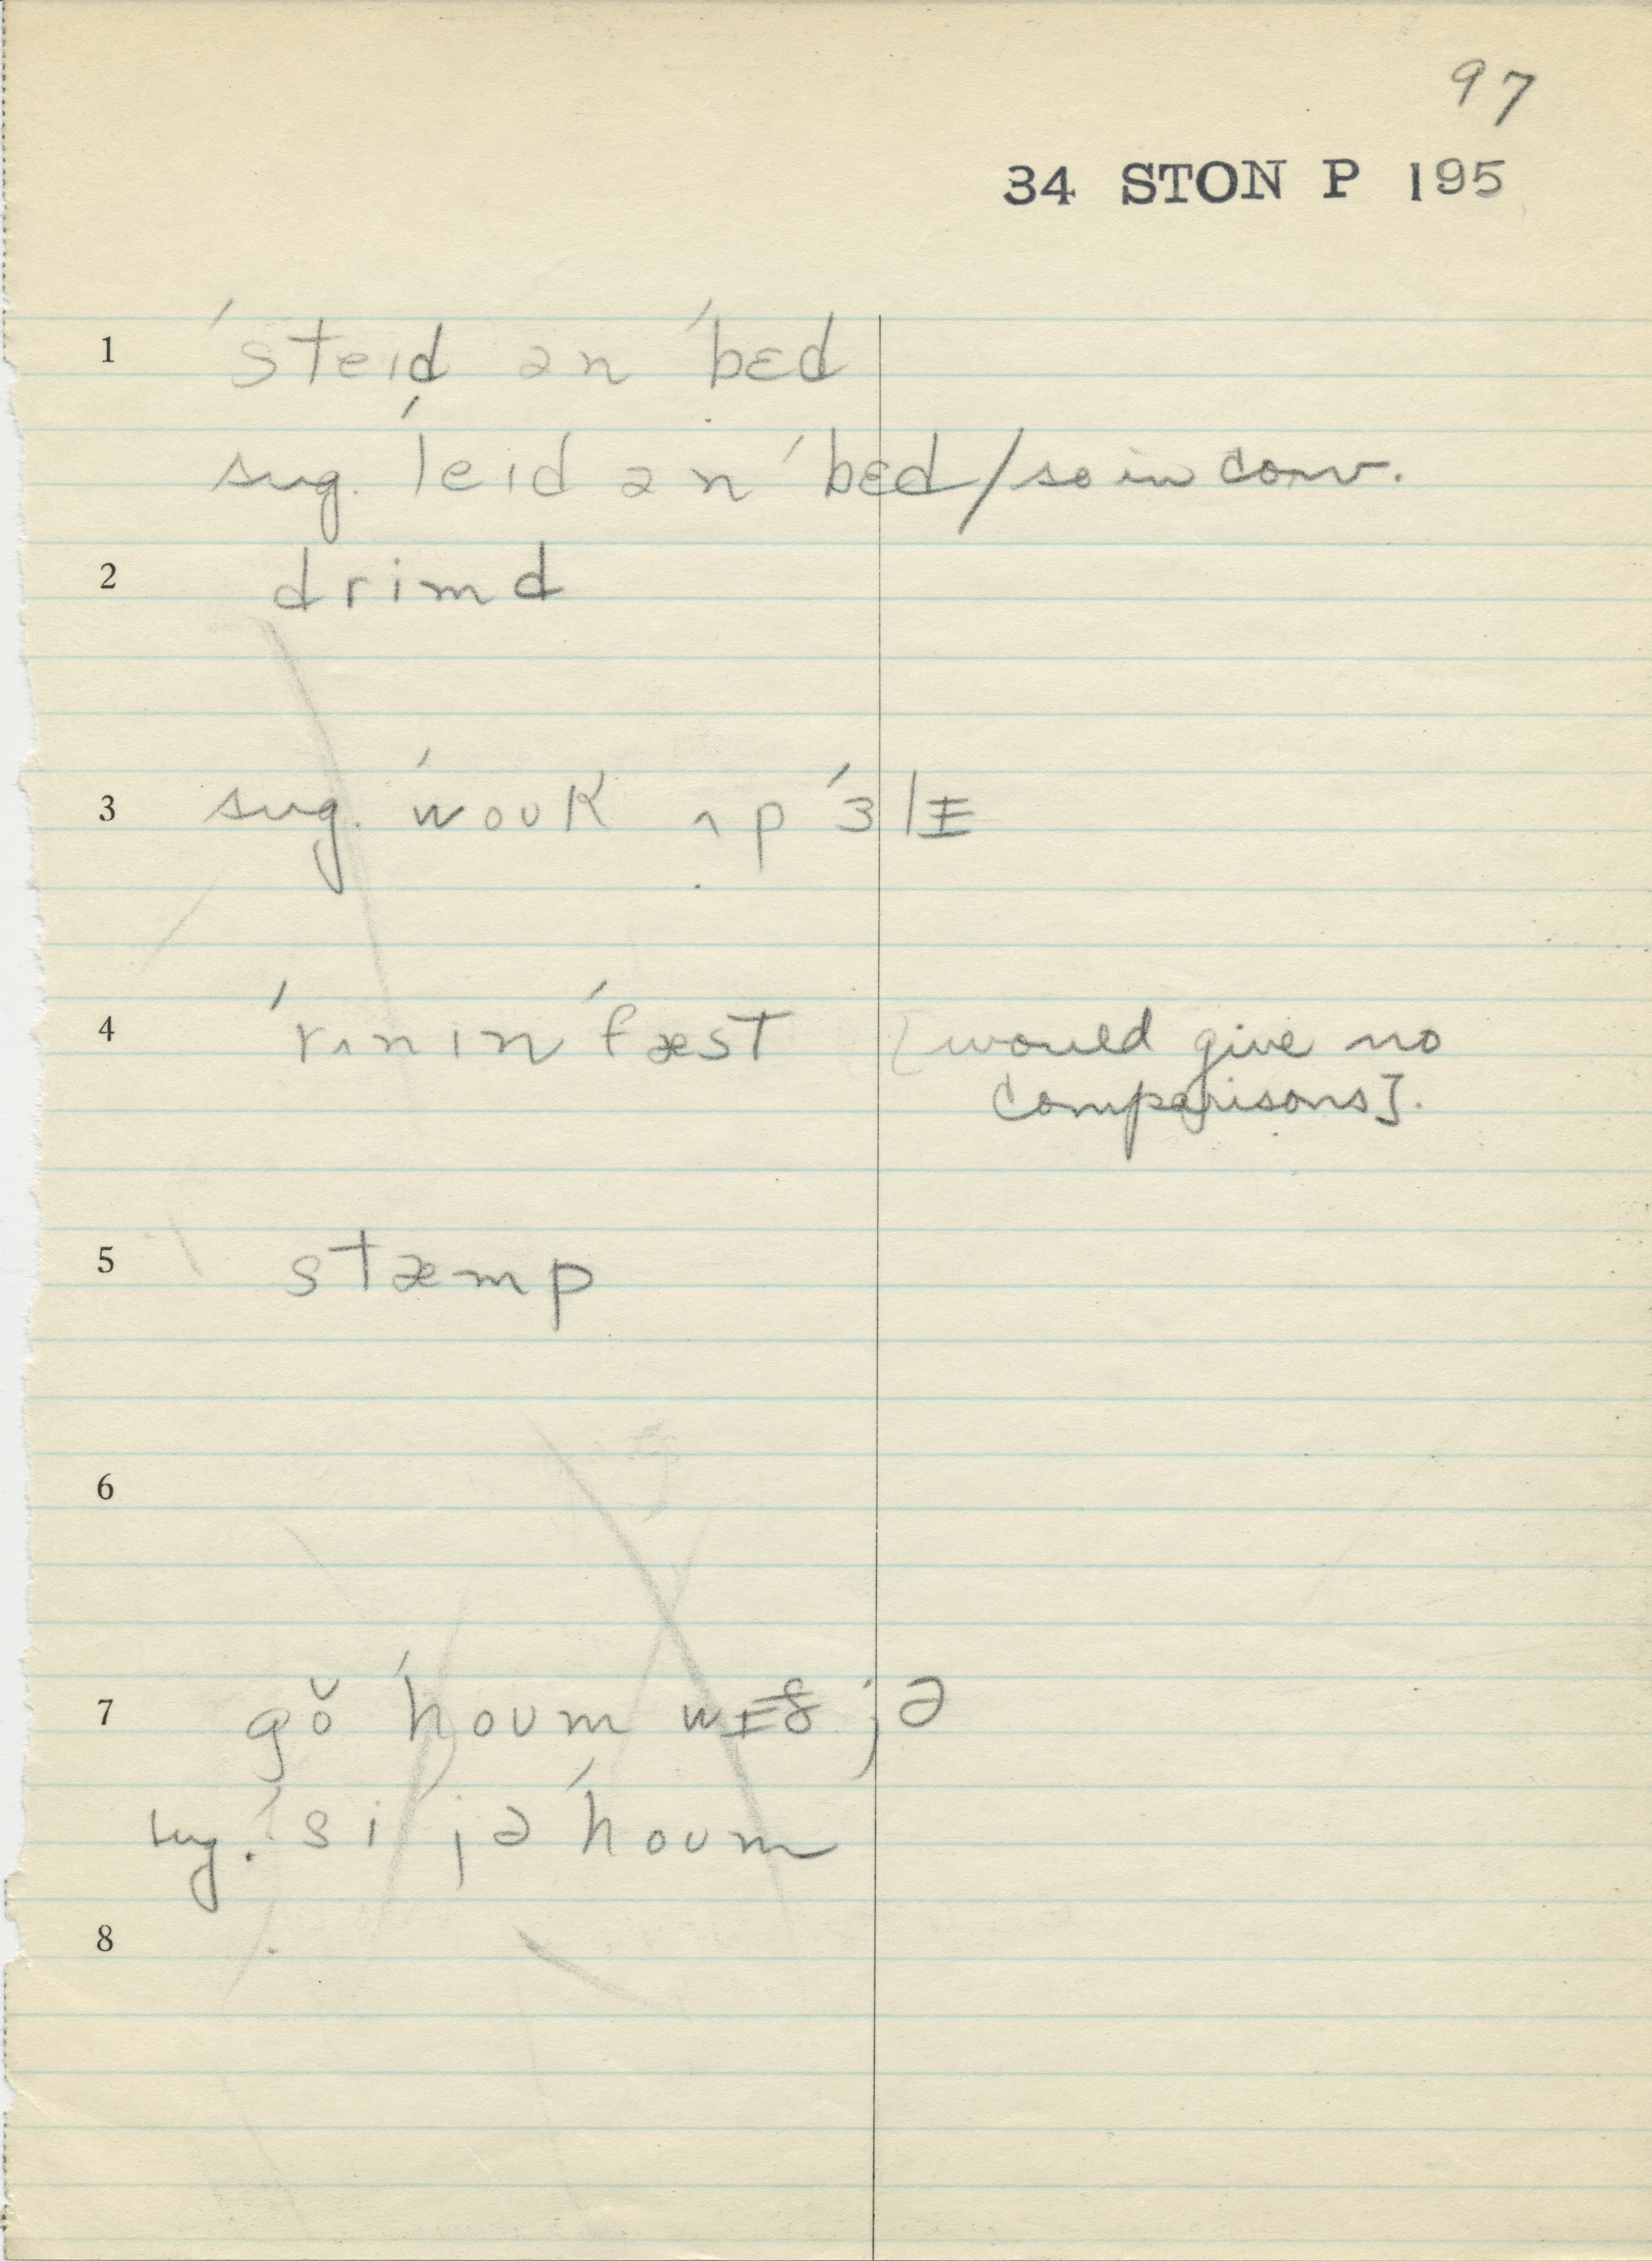 97
34 STON P 195
1 ˈsteɪd ən ˈbɛd
sug. ˈleɪd ən ˈbɛd / so in conv.
2 drimd
3 sug. ˈwoʊk ʌp ˈɜlɪ
4 ˈrʌnɪn ˈfæst [would give no
comparisons].
5 stæmp
6
7 gŏ ˈhoʊm wɪð jə
sug. ˈsi jə ˈhoʊm
8